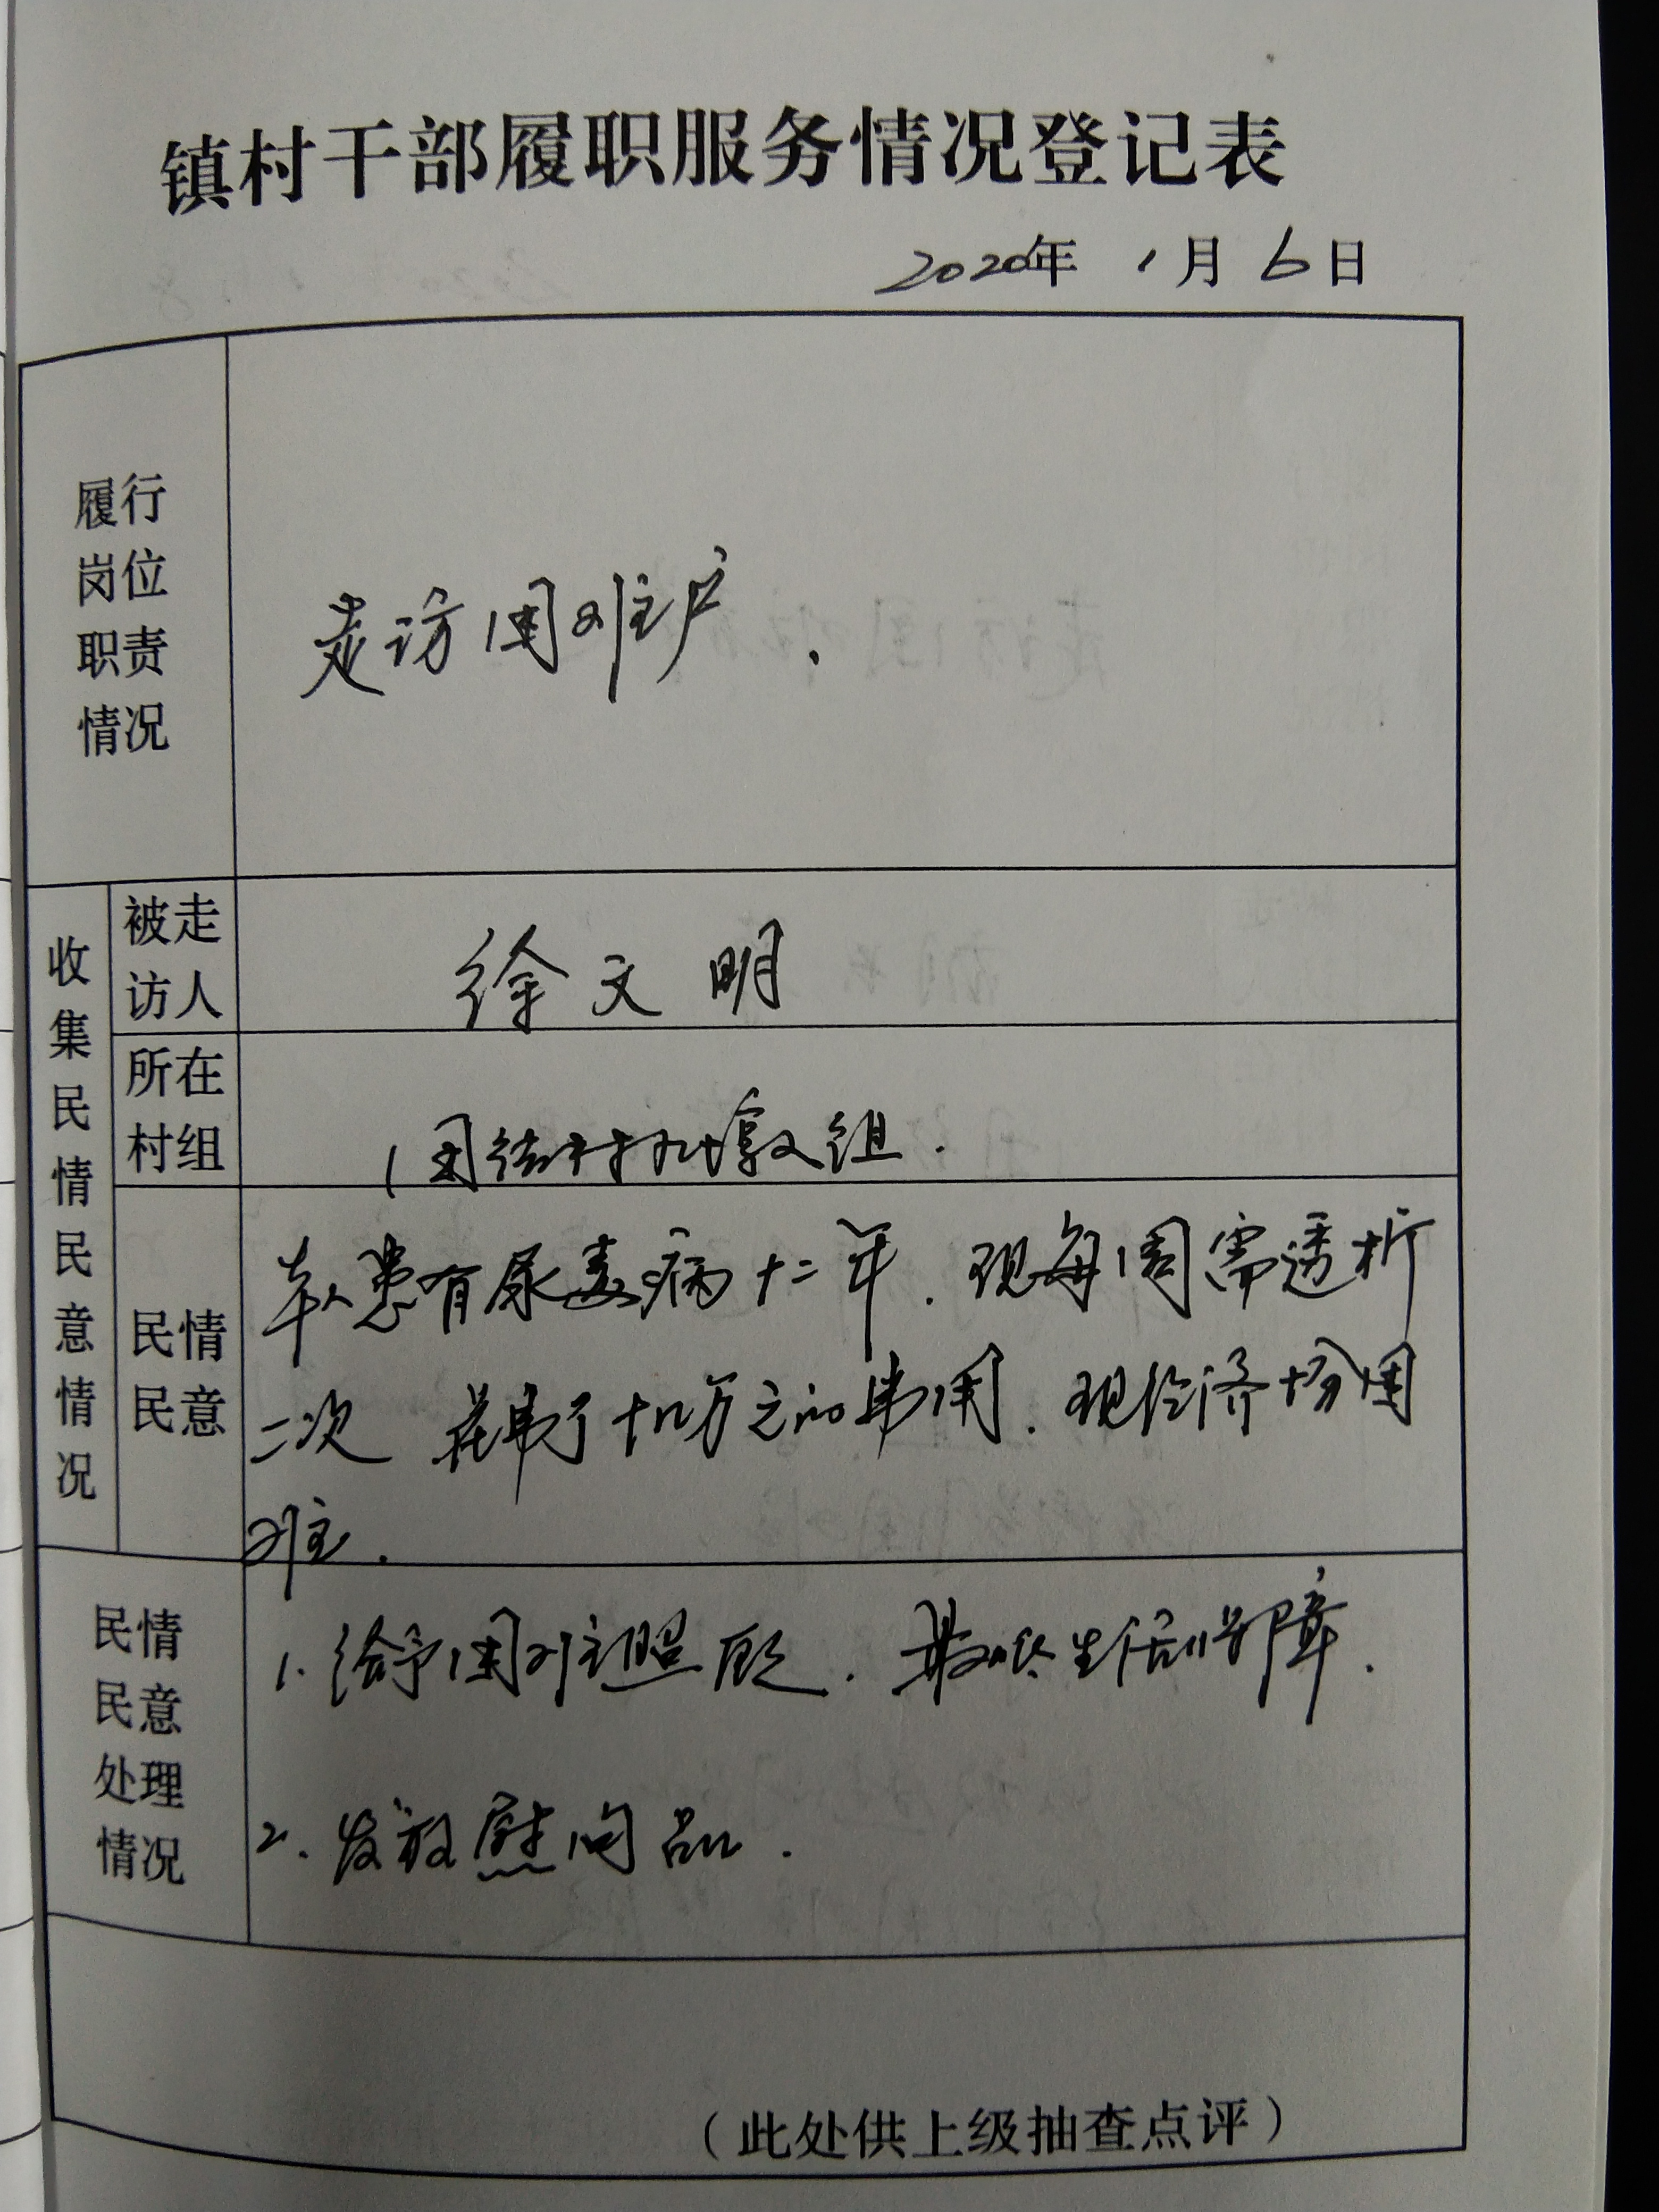 镇村干部履职服务情况登记表
2020年 1月 6日
履行
岗位
职责
情况
走访困难户.
收集民情民意情况
被走
访人
徐文明
所在
村组
团结村九墩组.
民情
民意
本人患有尿毒病十二年.现每周需透析
二次 花费了十几万元的费用.现经济十分困
难.
民情
民意
处理
情况
1.给予困难照顾.最低生活保障.
2.发放慰问品.
（此处供上级抽查点评）